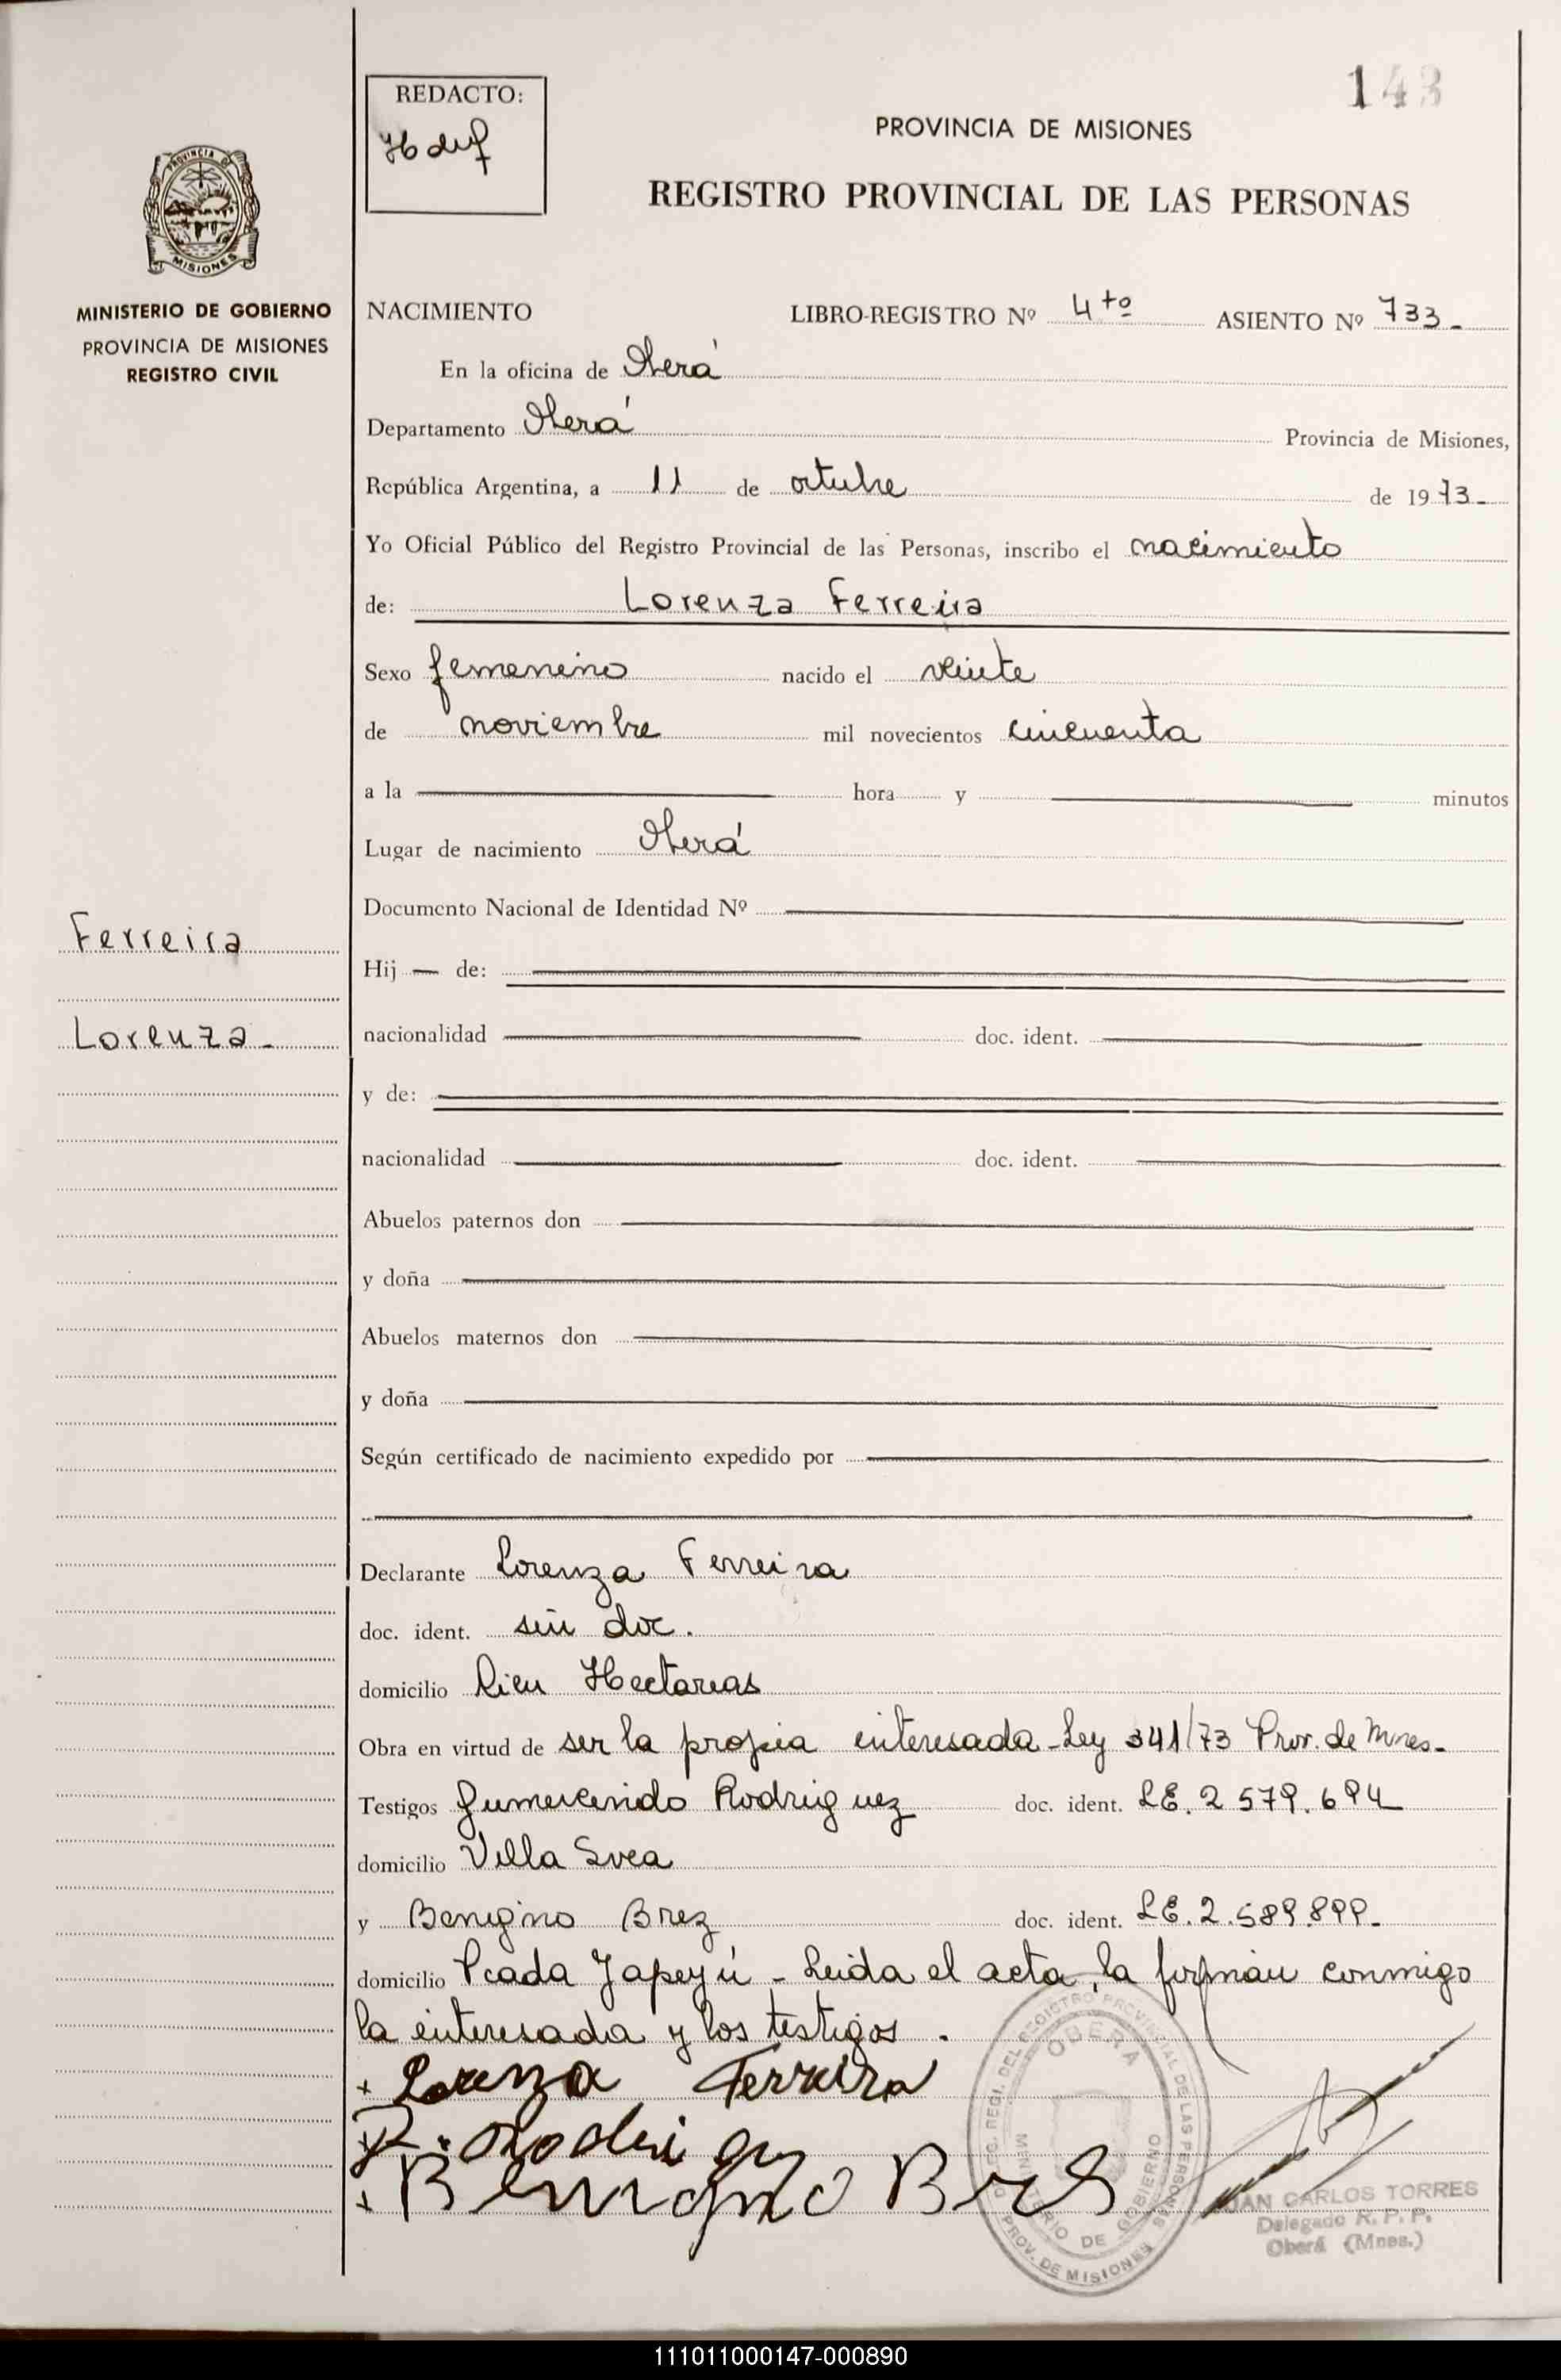 143
REDACTO:
PROVINCIA DE MISIONES
REGISTRO PROVINCIAL DE LAS PERSONAS
PROVINCIA DE
MISIONES
MINISTERIO DE GOBIERNO
PROVINCIA DE MISIONES
REGISTRO CIVIL
NACIMIENTO LIBRO-REGISTRO Nº 4to ASIENTO Nº 733-
En la oficina de Oberá
Departamento Oberá Provincia de Misiones,
República Argentina, a 11 de octubre de 1973-
Yo Oficial Público del Registro Provincial de las Personas, inscribo el nacimiento
de: Lorenza Ferreira
Sexo femenino nacido el veinte
de noviembre mil novecientos cincuenta
a la hora y minutos
Lugar de nacimiento Oberá
Documento Nacional de Identidad Nº
Ferreira
Hij — de:
Lorenza-
nacionalidad doc. ident.
y de:
nacionalidad doc. ident.
Abuelos paternos don
y doña
Abuelos maternos don
y doña
Según certificado de nacimiento expedido por
Declarante Lorenza Ferreira
doc. ident. sin doc.
domicilio Cien Hectareas
Obra en virtud de ser la propia interesada-Ley 341/73 Prov. de Mnes-
Testigos Gumercindo Rodriguez doc. ident. LE. 2 579.694
domicilio Villa Svea
y Benigno Brez doc. ident. LE. 2.589.899-
domicilio Picada Yapeyú - Leida el acta, la firman conmigo
la interesada y los testigos.
+ Lorenza Ferreira
+ Benigno Bres
OBERA
MINISTERIO DE GOBIERNO
PROV. DE MISIONES
JUAN CARLOS TORRES
Delegado R. P. P.
Oberá (Mnes.)
111011000147-000890